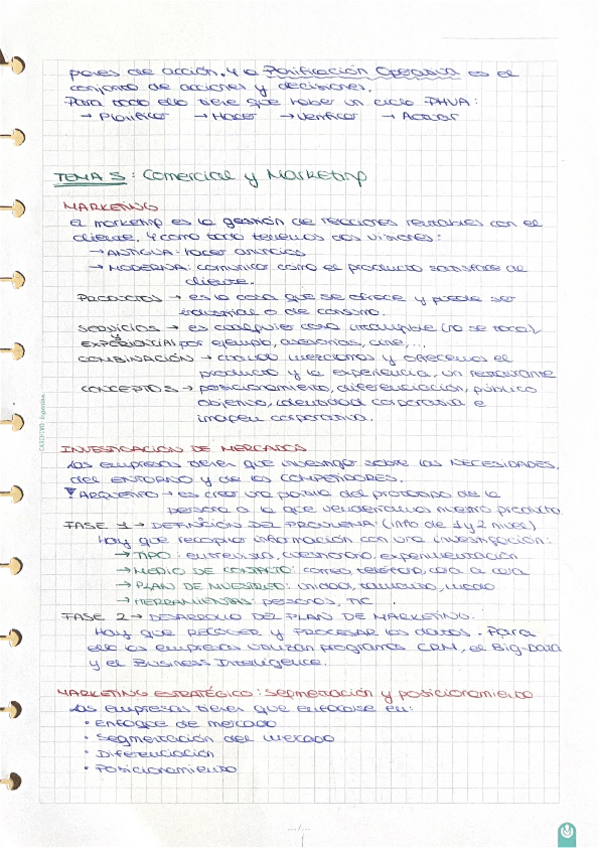 planes de acción. Y la Planificación Operativa es el
conjunto de acciones y decisiones.
Para todo ello tiene que haber un ciclo PHVA:
→ Planificar → Hacer → Verificar → Actuar
TEMA 5: Comercial y Marketing
MARKETING
El marketing es la gestión de relaciones rentables con el
cliente. Y como todo tenemos dos visiones:
→ ANTIGUA: hacer anuncios
→ MODERNA: comunicar como el producto satisface al
cliente.
PRODUCTOS → es la cosa que se ofrece y puede ser
industrial o de consumo.
SERVICIOS → es cualquier cosa intangible (no se toca),
y
EXPERIENCIAS por ejemplo, asesorías, cine,...
COMBINACIÓN → cuando mezclamos y ofrecemos el
producto y la experiencia, un restaurante
CONCEPTOS → posicionamiento, diferenciación, público
objetivo, identidad corporativa e
imagen corporativa.
INVESTIGACIÓN DE MERCADOS
Las empresas tienen que investigar sobre las NECESIDADES,
del ENTORNO y de los COMPETIDORES.
ARQUETIPO → es crear una plantilla del prototipo de la
persona a la que venderíamos nuestro producto.
FASE 1 → DEFINICIÓN DEL PROBLEMA: (info de 1 y 2 nivel)
Hay que recopilar información con una investigación:
→ TIPO: entrevista, cuestionario, experimentación
→ MEDIO DE CONTACTO: correo, teléfono, cara a cara
→ PLAN DE MUESTREO: unidad, tamaño, medio
→ HERRAMIENTAS: personas, TIC
FASE 2 → DESARROLLO DEL PLAN DE MARKETING.
Hay que RECOGER y PROCESAR los datos. Para
ello las empresas utilizan programas CRM, el Big-Data
y el Business Intelligence.
MARKETING ESTRATÉGICO: segmentación y posicionamiento
Las empresas tienen que enfocarse en:
• Enfoque de mercado
• Segmentación del mercado
• Diferenciación
• Posicionamiento